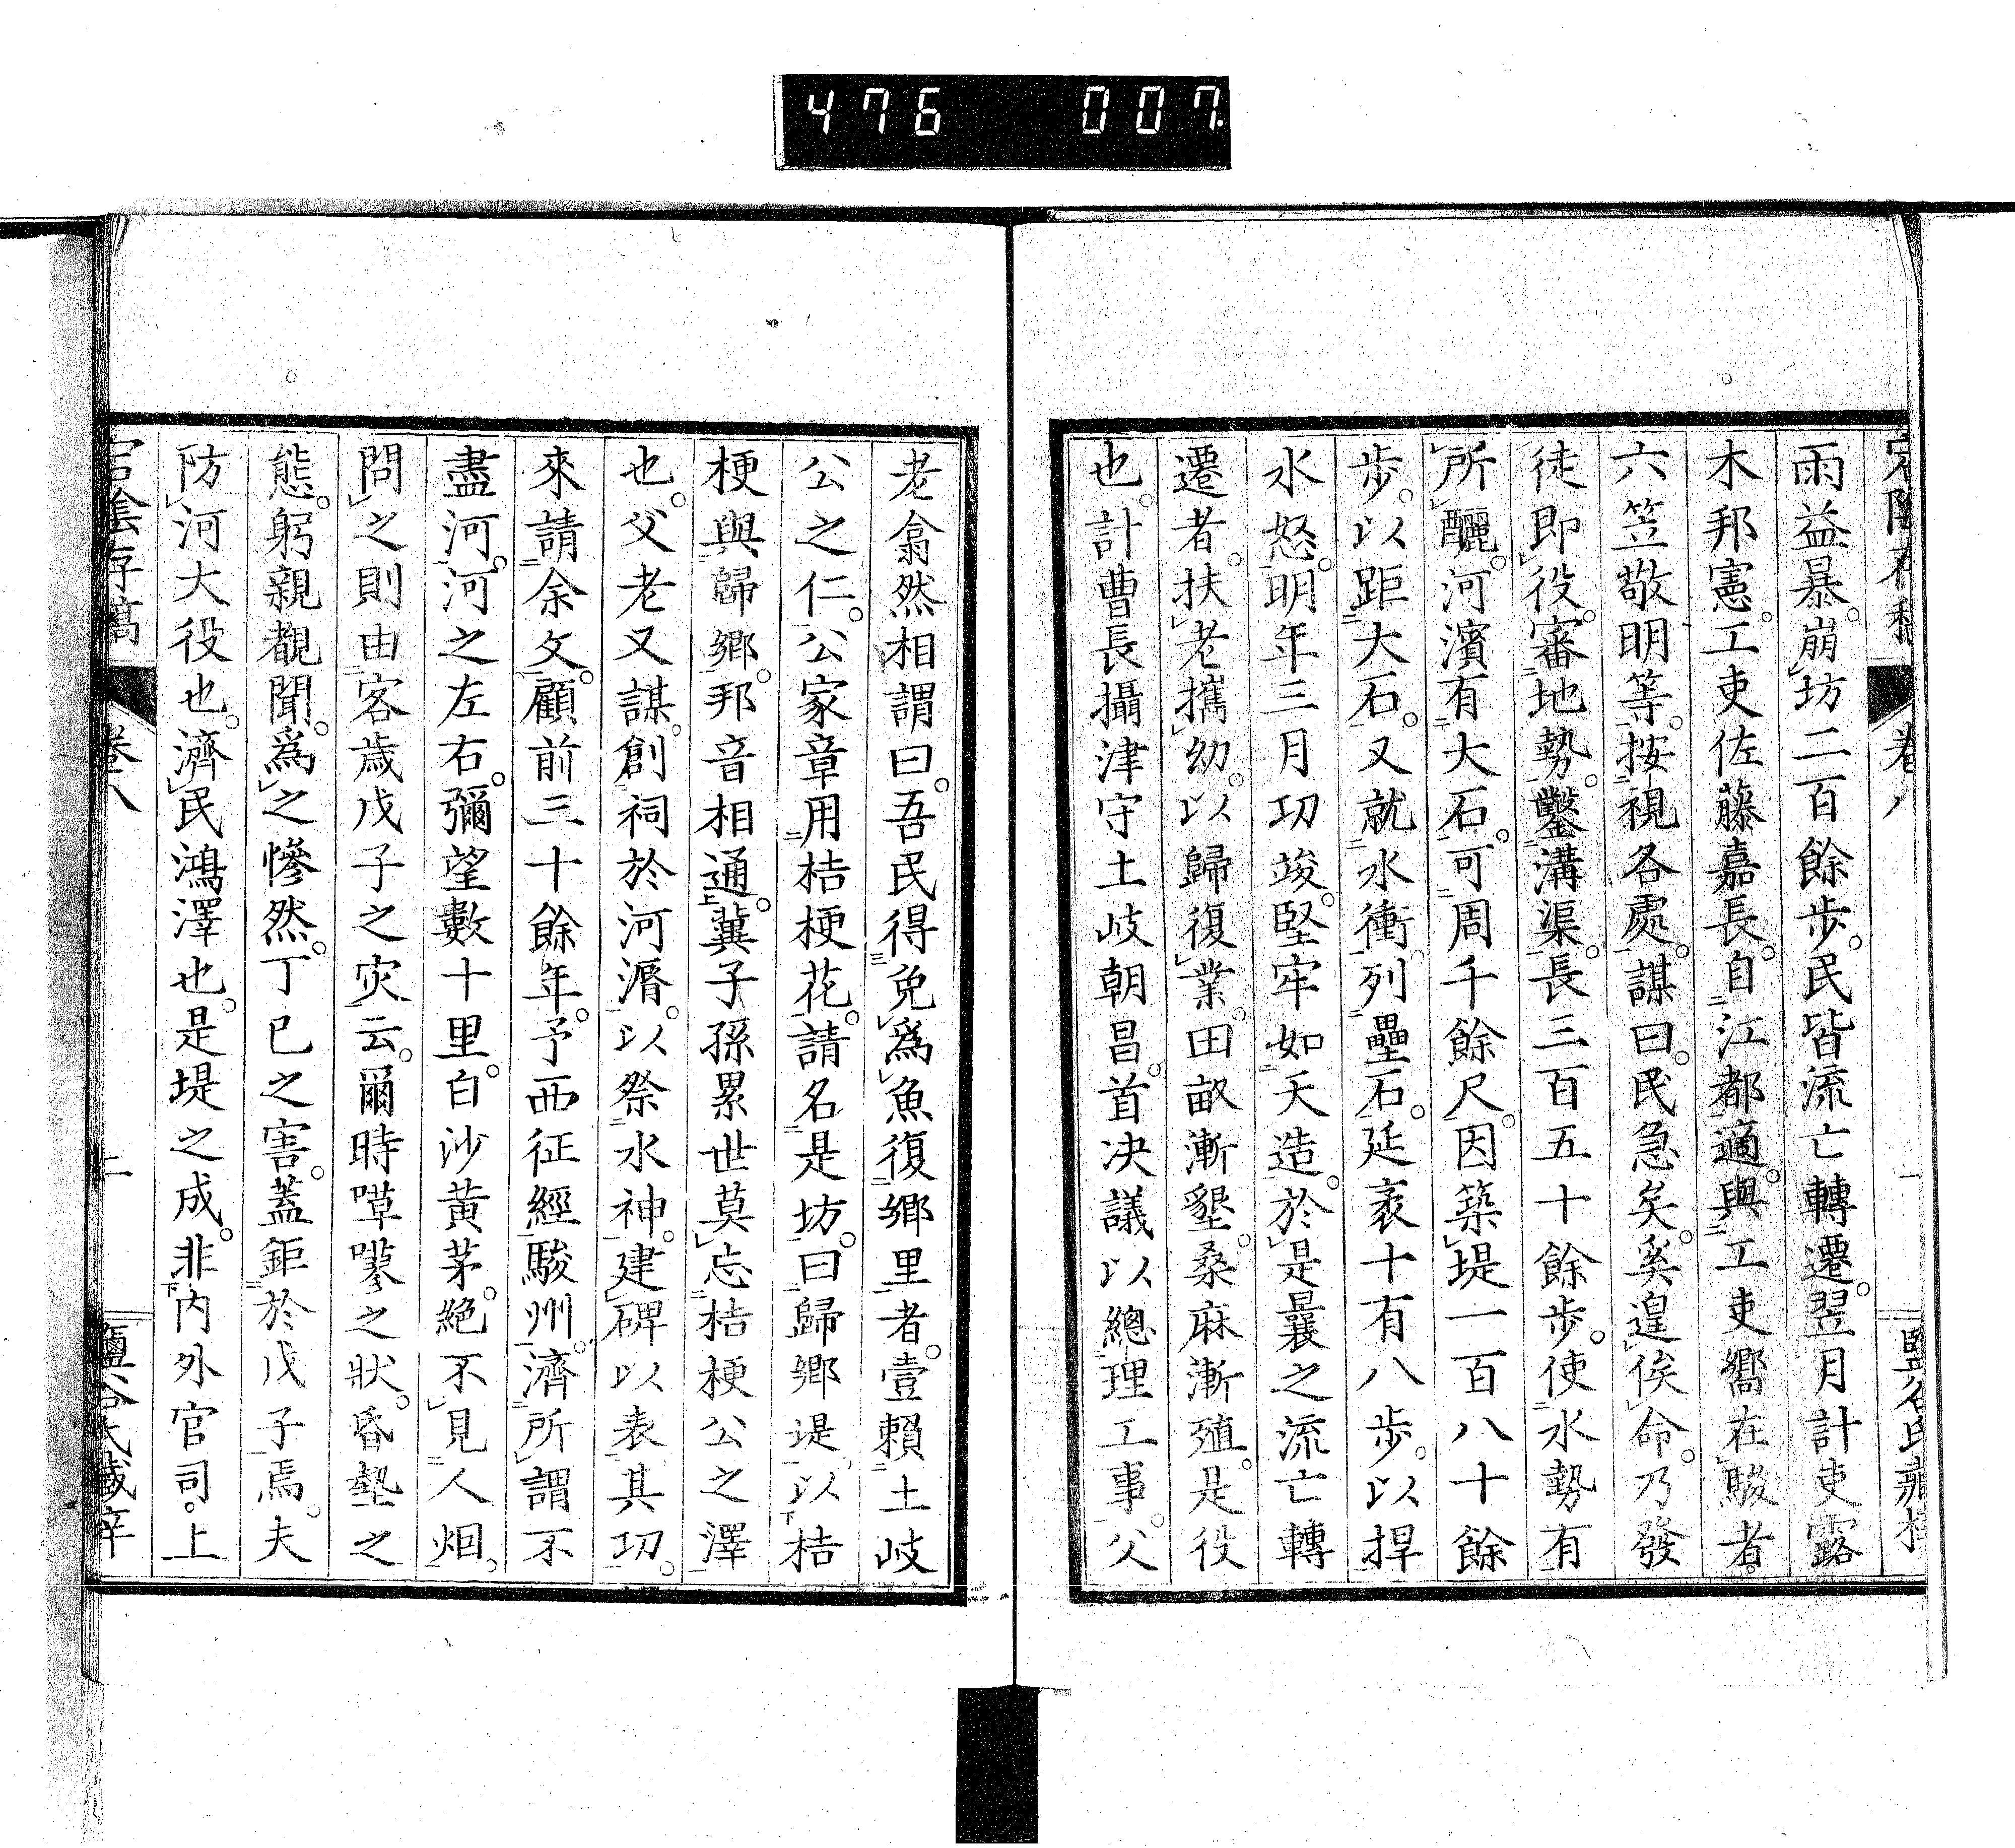 476 007
宕陰存稿 卷八
雨益暴。崩坊二百餘歩。民皆流亡轉遷。翌月計吏露
木邦憲。工吏佐藤嘉長。自江都適。與工吏嚮在駿者。
六笠敬明等。按視各處。謀曰。民急矣。奚遑俟命。乃發
徒即役。審地勢。鑿溝渠。長三百五十餘歩。使水勢有
所釃。河濱有大石。可周千餘尺。因築堤一百八十餘
歩。以距大石。又就水衝。列壘石。延袤十有八歩。以捍
水怒。明年三月功竣。堅牢如天造。於是曩之流亡轉
遷者。扶老攜幼。以歸復業。田畝漸墾。桑麻漸殖。是役
也。計曹長攝津守土岐朝昌。首决議以總理工事。父
老翕然相謂曰。吾民得免爲魚復郷里者。壹賴土岐
公之仁。公家章用桔梗花。請名是坊。曰歸郷堤。以桔
梗與歸郷。邦音相通。冀子孫累世莫忘桔梗公之澤
也。父老又謀。創祠於河漘。以祭水神。建碑以表其功。
來請余文。顧前三十餘年。予西征經駿州。濟所謂不
盡河。河之左右。彌望數十里。白沙黃茅。絕不見人烟。
問之則由客歳戊子之灾云。爾時嘽嘐之狀。昏墊之
態。躬親覩聞。爲之慘然。丁巳之害。蓋鉅於戊子焉。夫
防河大役也。濟民鴻澤也。是堤之成。非内外官司。上
宕陰存稿 卷八 二 鹽谷氏藏梓